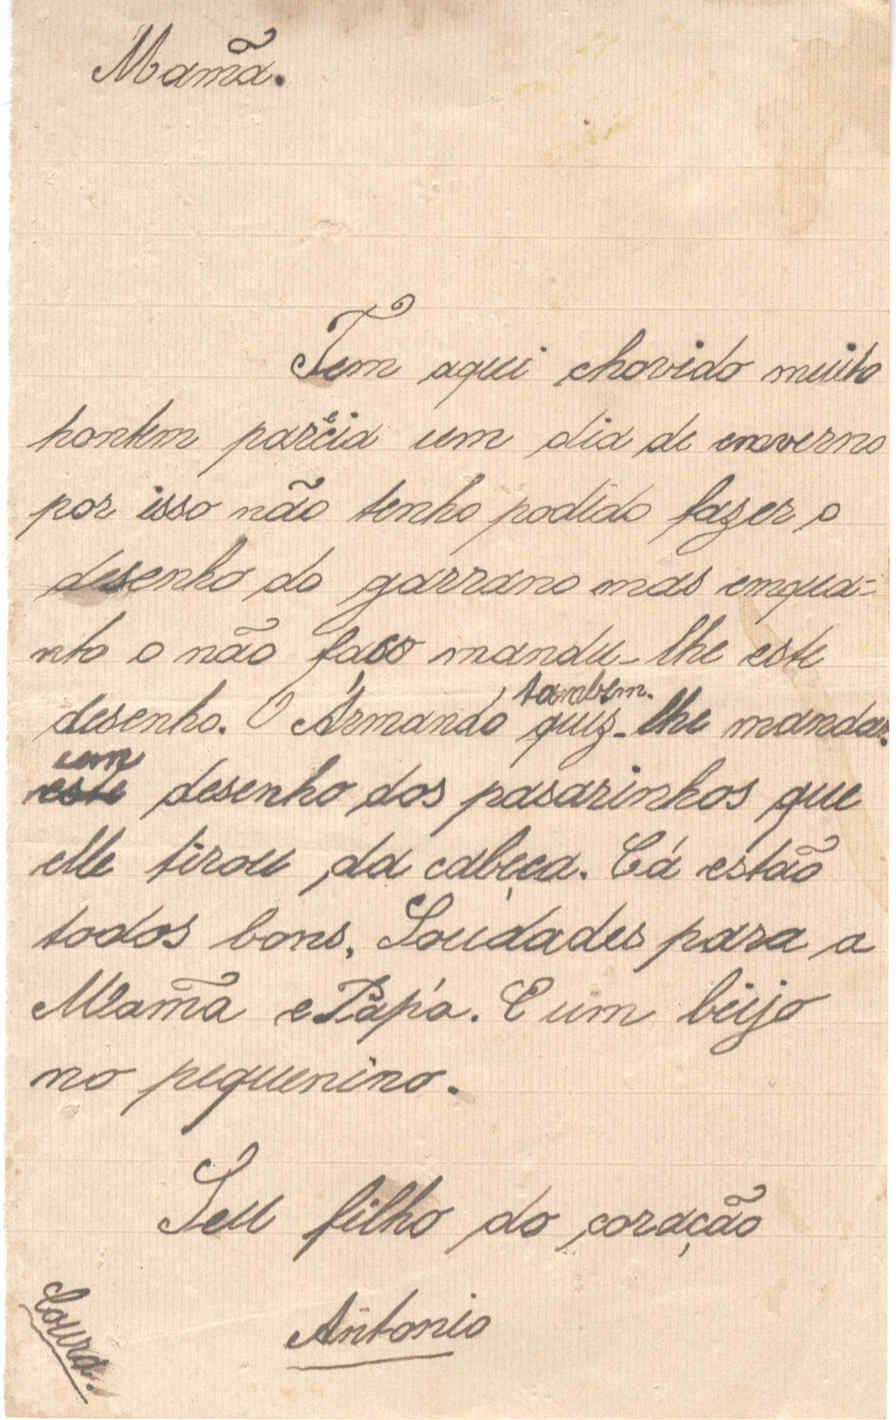 Mamã.
Tem aqui chovido muito
hontem parecia um dia de enverno
por isso não tenho podido fazer o
desenho do garrano mas emqua=
nto o não faco mando-lhe este
desenho. O Armando tambem quiz-lhe mandar
um desenho dos pasarinhos que
elle tirou da cabeça. Cá estão
todos bons. Soudades para a
Mamã e Papá. E um beijo
no pequenino.
Seu filho do coração
Antonio
Coura.